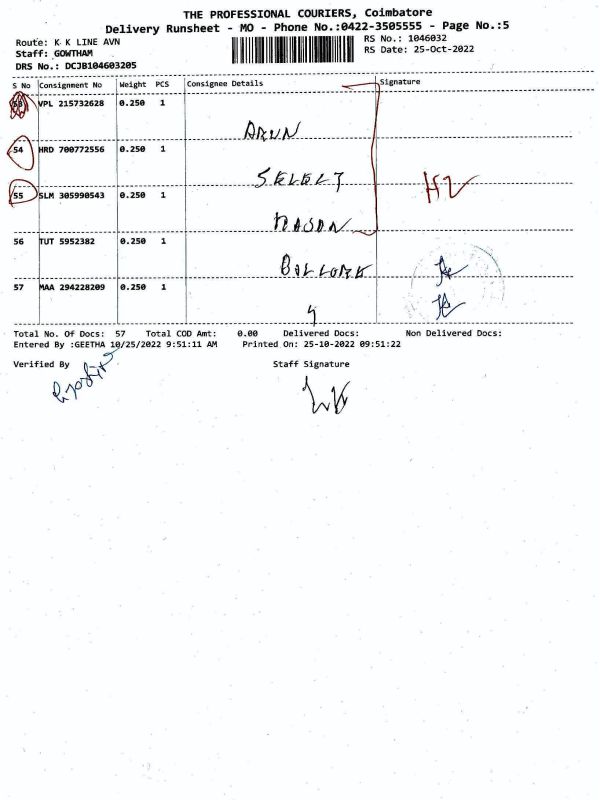 THE PROFESSIONAL COURIERS, Coimbatore
Delivery Runsheet - MO - Phone No.:0422-3505555 - Page No.:5
Route: K K LINE AVN
RS No.: 1046032
Staff: GOWTHAM
RS Date: 25-Oct-2022
DRS No.: DCJB104603205
S No Consignment No Weight PCS Consignee Details Signature
53 VPL 215732628 0.250 1
ARUN
54 HRD 700772556 0.250 1
SELECT
55 SLM 305990543 0.250 1
H2
56 TUT 5952382 0.250 1
57 MAA 294228209 0.250 1
Total No. Of Docs: 57 Total COD Amt: 0.00 Delivered Docs: Non Delivered Docs:
Entered By :GEETHA 10/25/2022 9:51:11 AM Printed On: 25-10-2022 09:51:22
Verified By Staff Signature